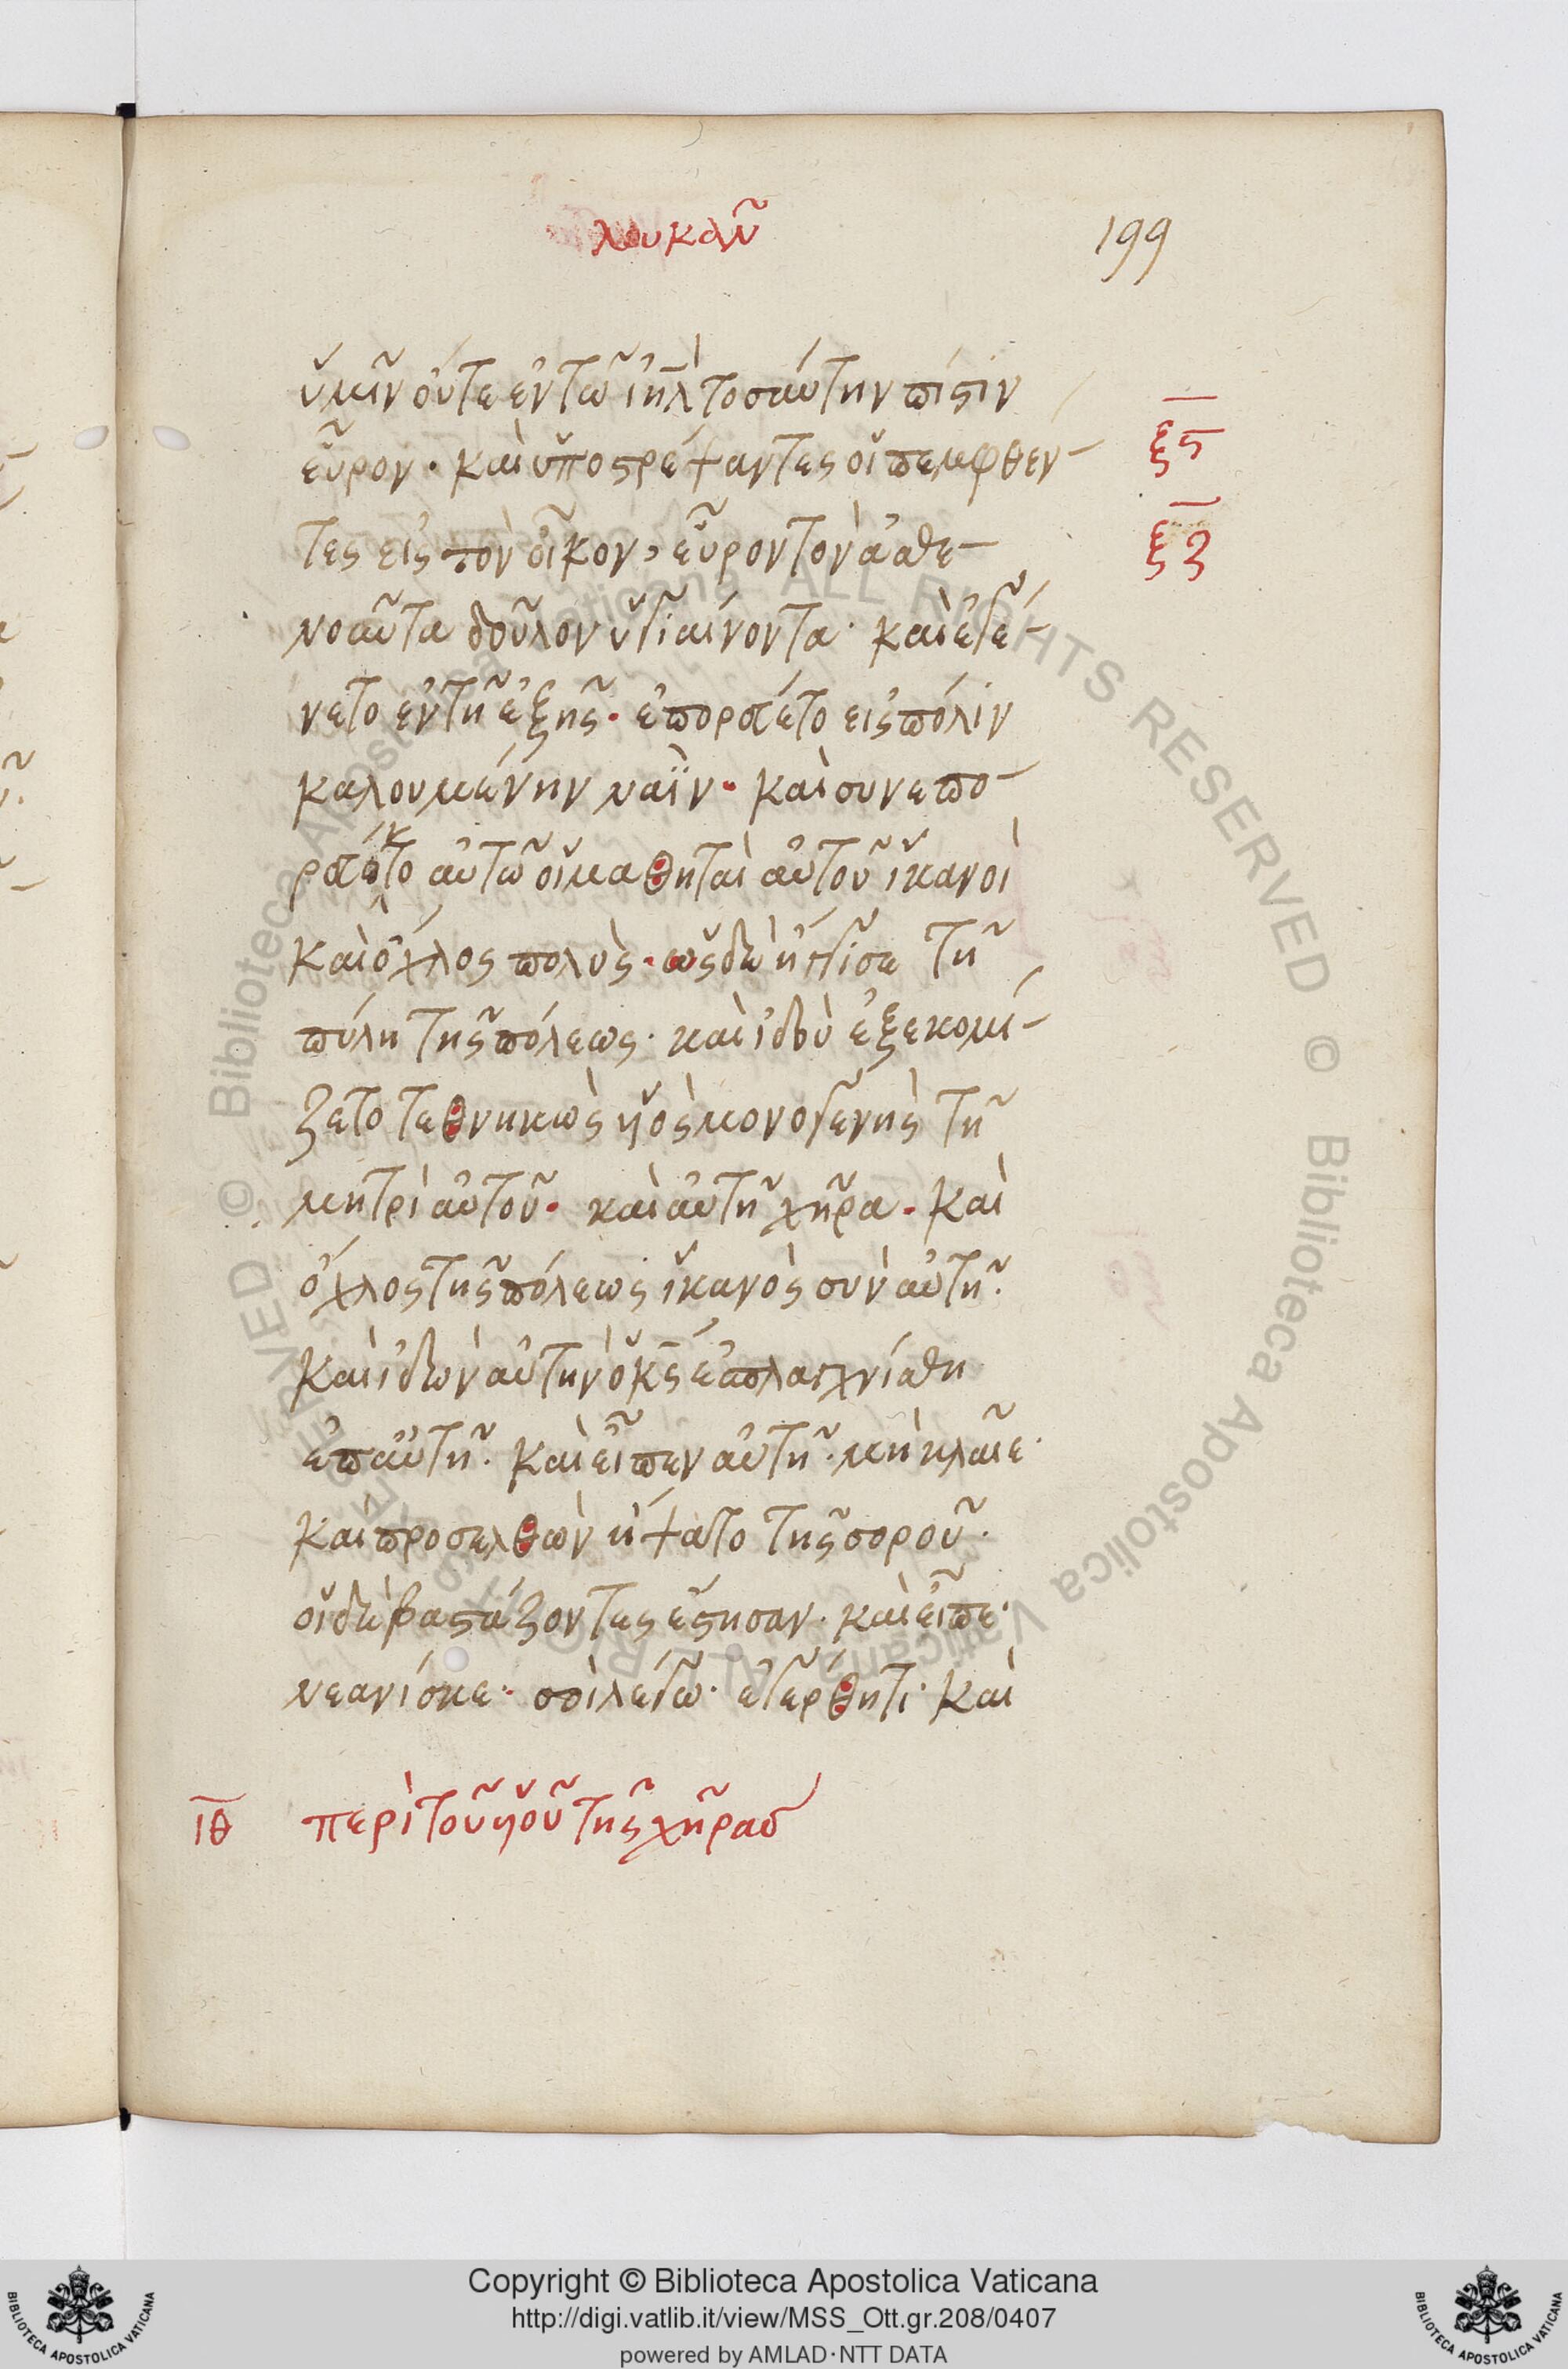 λουκᾶν
199
ὑμῖν οὔτε ἐν τῶ ἰηλ τοσαύτην πίστιν
εὗρον· καὶ ὑποστρέψαντες οἱ πεμφθέν-
τες εἰς τὸν οἶκον, εὗρον τὸν ἀσθε-
νοῦντα δοῦλον ὑγιαίνοντα· καὶ ἐγέ-
νετο ἐν τῆ ἑξῆς· ἐπορεύετο εἰς πόλιν
καλουμένην ναΐν· καὶ συνεπο-
ρεύοντο αὐτῶ οἱ μαθηταὶ αὐτοῦ ἱκανοὶ
καὶ ὄχλος πολὺς· ὡς δὲ ἤγγισε τῆ
πύλη τῆς πόλεως· καὶ ἰδοὺ ἐξεκομί-
ζετο τεθνηκὼς υἱὸς μονογενὴς τῆ
μητρὶ αὐτοῦ· καὶ αὐτῆ χῆρα· καὶ
ὄχλος τῆς πόλεως ἱκανὸς σὺν αὐτῆ·
καὶ ἰδὼν αὐτὴν ὁ κς ἐσπλαγχνίσθη
ἐπ αὐτῆ· καὶ εἶπεν αὐτῆ· μὴ κλαῖε·
καὶ προσελθὼν ἥψατο τῆς σοροῦ·
οἱ δὲ βαστάζοντες ἔστησαν· καὶ εἶπε·
νεανίσκε· σοὶ λέγω· ἐγέρθητι· καὶ
ξς
ξζ
ιθ περὶ τοῦ υἱοῦ τῆς χήρας
Copyright © Biblioteca Apostolica Vaticana
http://digi.vatlib.it/view/MSS_Ott.gr.208/0407
powered by AMLAD·NTT DATA
BIBLIOTECA APOSTOLICA VATICANA
BIBLIOTECA APOSTOLICA VATICANA
© Biblioteca Apostolica Vaticana ALL RIGHTS RESERVED © Biblioteca Apostolica Vaticana ALL RIGHTS RESERVED